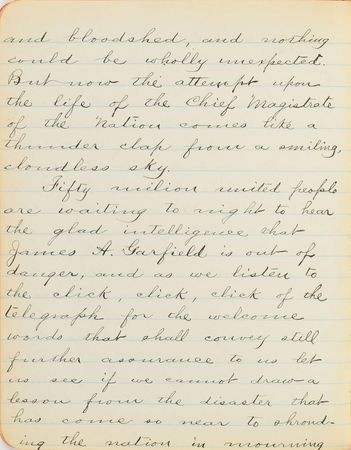 and bloodshed, and nothing
could be wholly unexpected.
But now the attempt upon
the life of the Chief Magistrate
of the Nation comes like a
thunder clap from a smiling,
cloudless sky.
Fifty milion united people
are waiting to night to hear
the glad intelligence that
James A. Garfield is out of
danger, and as we listen to
the click, click, click of the
telegraph for the welcome
words that shall convey still
further assurance to us let
us see if we cannot draw a
lesson from the disaster that
has come so near to shroud-
ing the nation in mourning